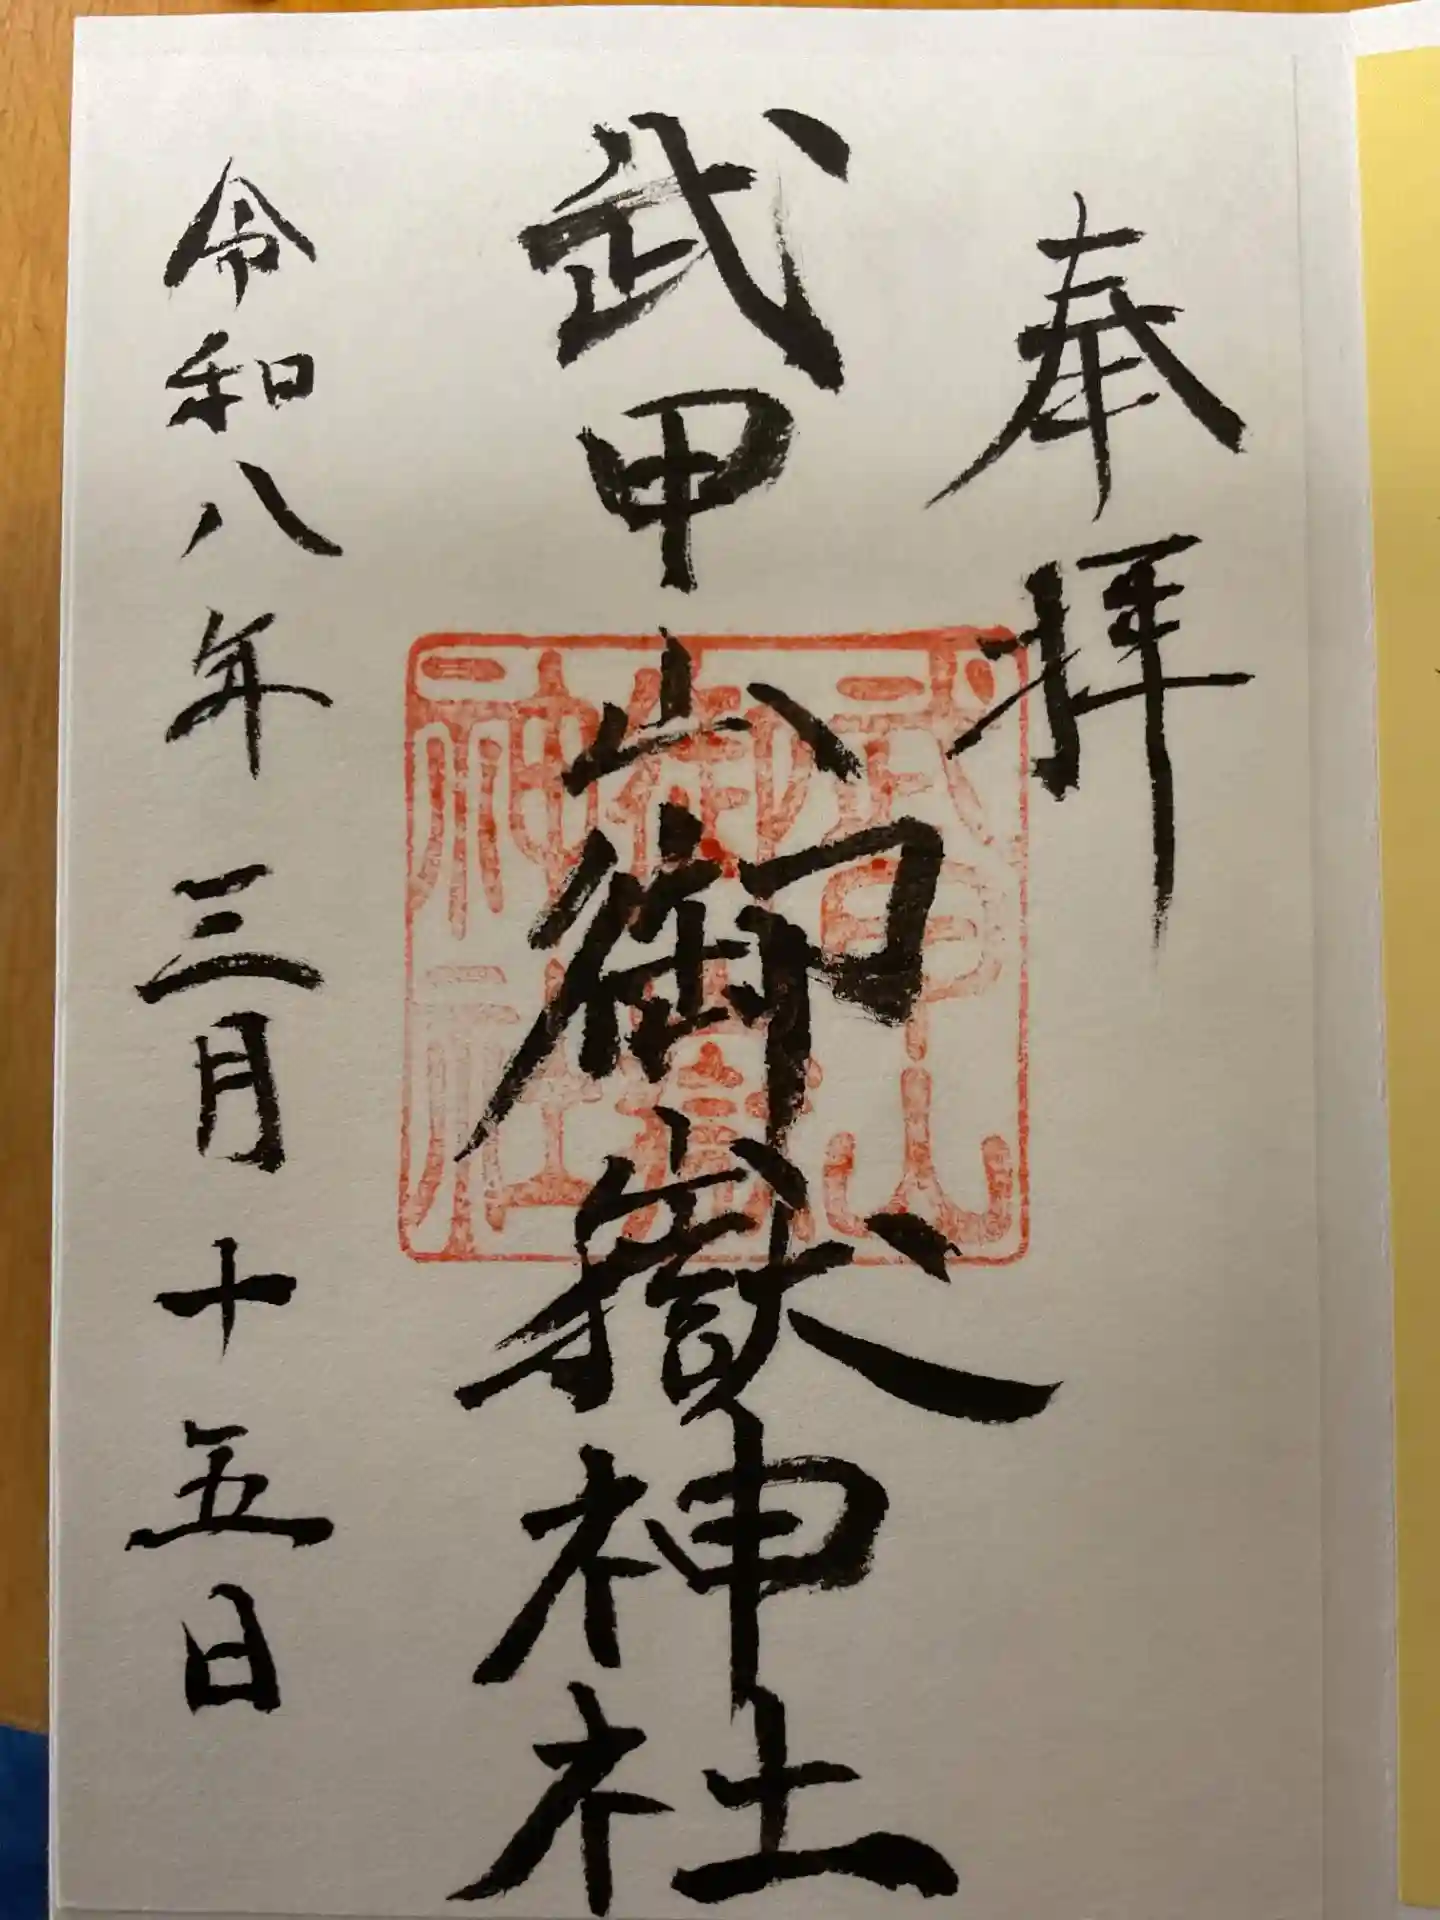 奉拝
武甲山御嶽神社
武甲山
御嶽
神社
令和八年三月十五日